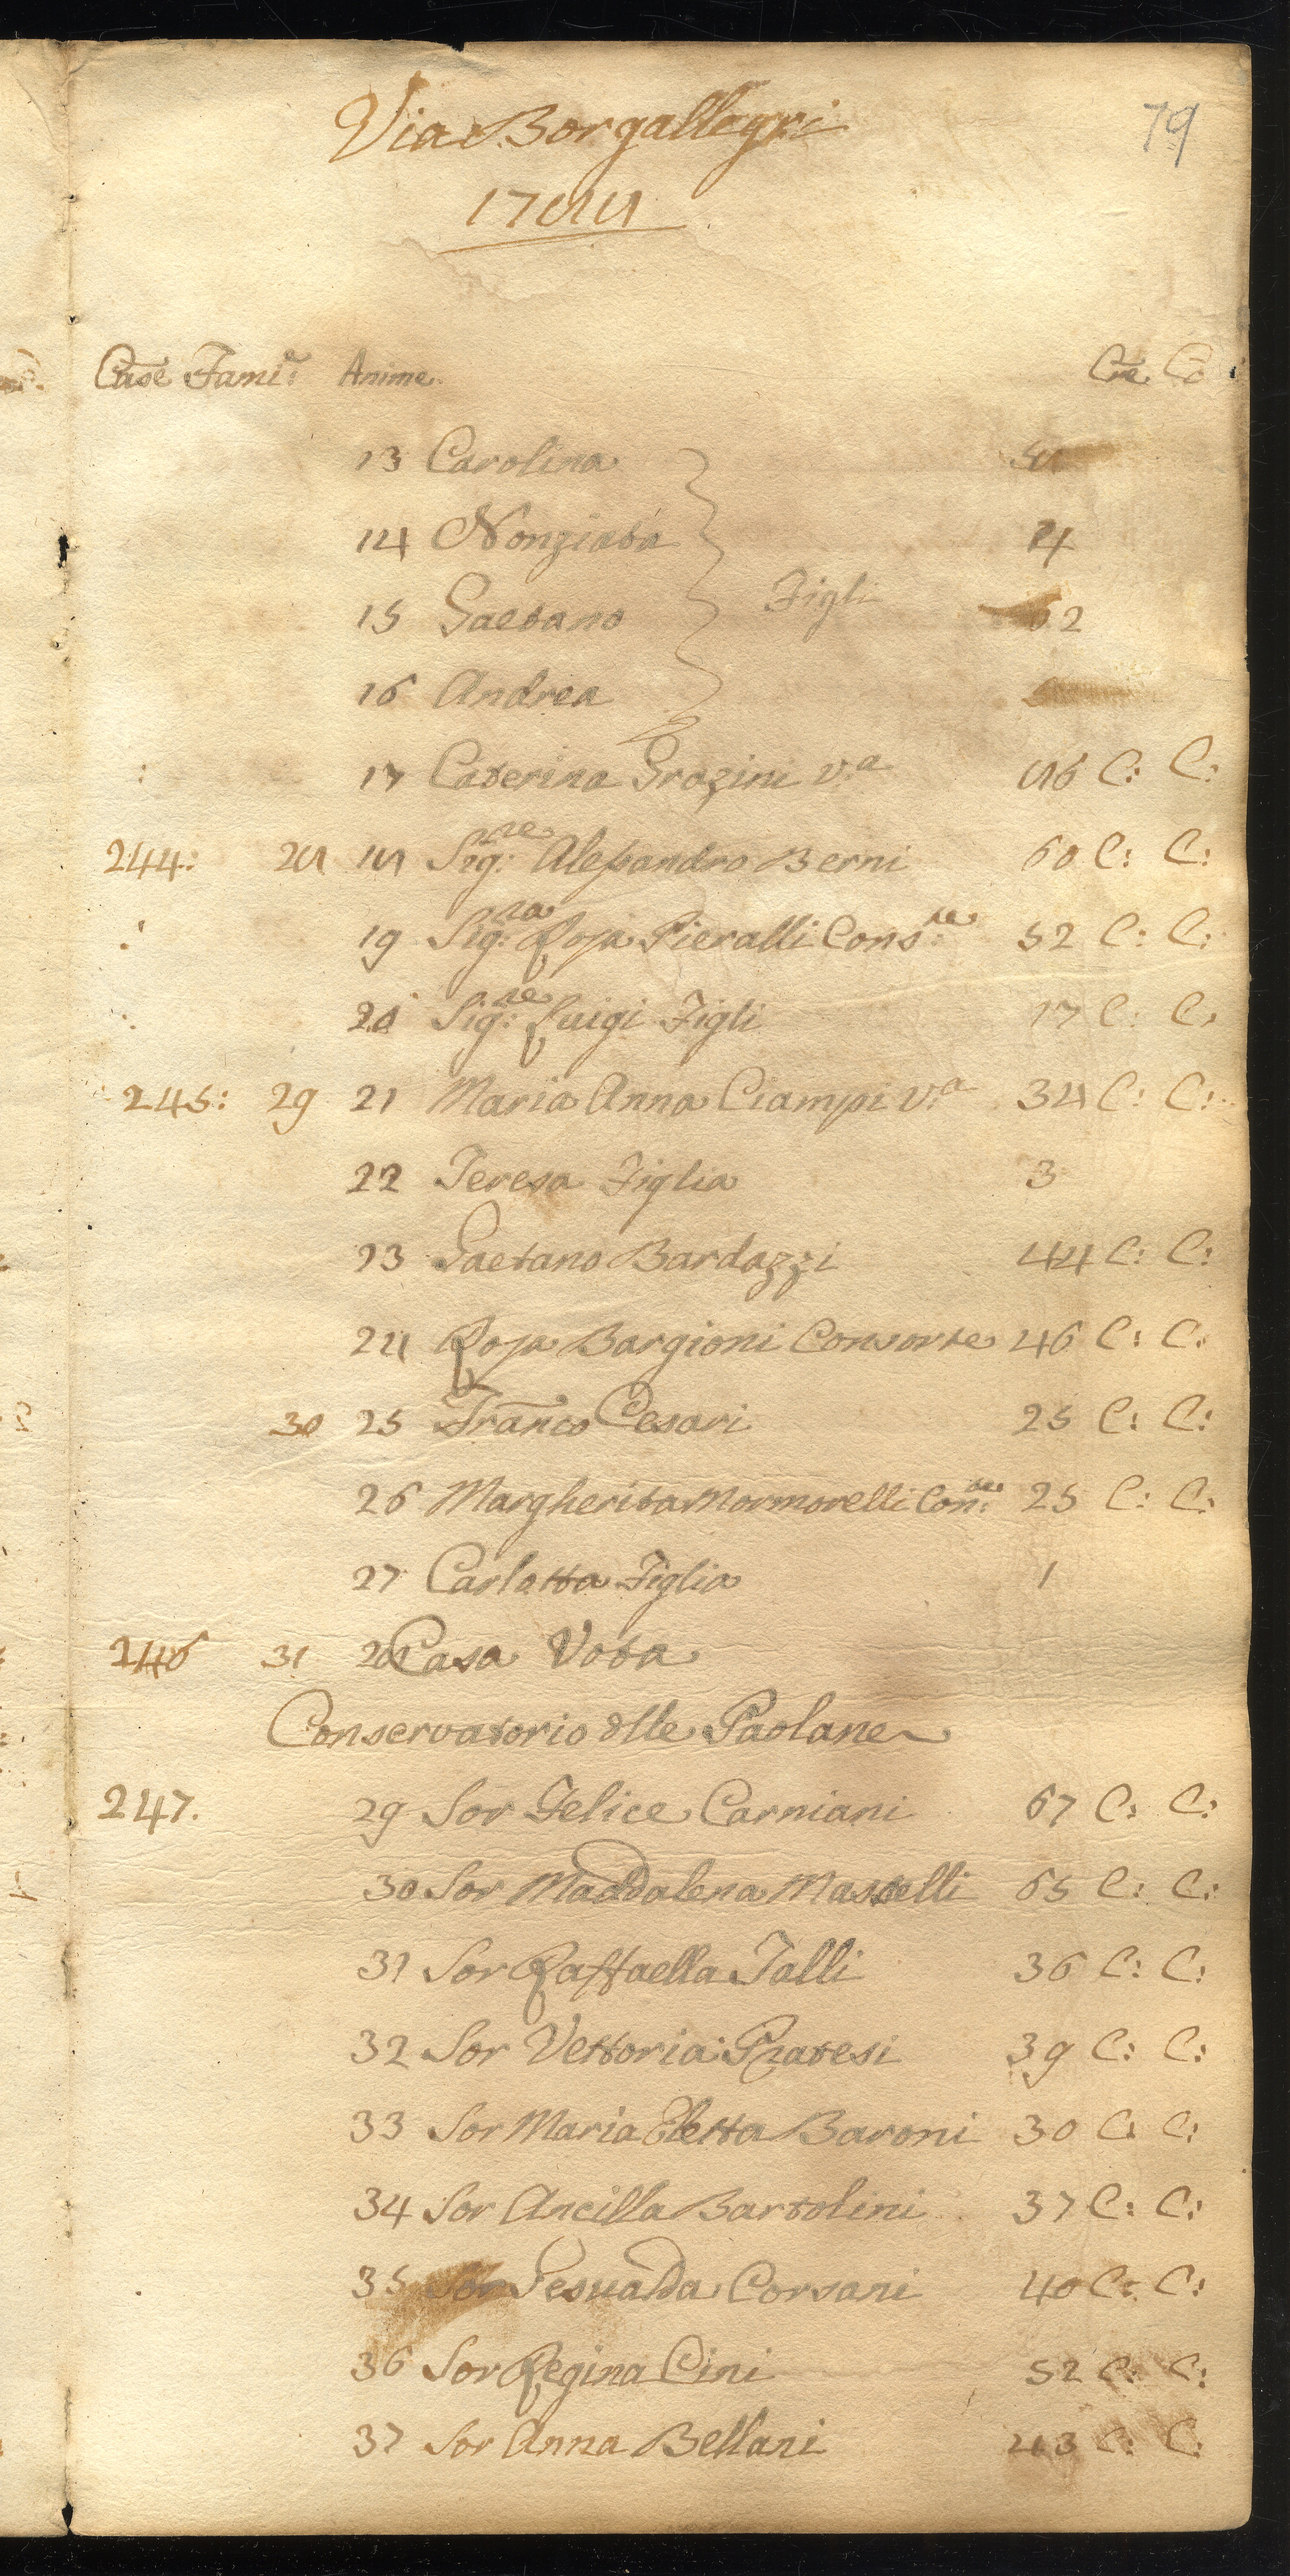 Via Borgallegri
79
1788
Case Fami: Anime. Cre. Co
13 Carolina
14 Nonziata 4
15 Gaetano Figli 2
16 Andrea
17 Caterina Grazini v:a 86 C: C:
244: 28 18 Sig:re Alessandro Berni 60 C: C:
19 Sig:ra Rosa Pieralli Cons:te 52 C: C:
20 Sig:re Luigi Figli 17 C: C:
245: 29 21 Maria Anna Ciampi v:a 38 C: C:
22 Teresa Figlia 3
23 Gaetano Bardazzi 44 C: C:
24 Rosa Bargioni Consorte 46 C: C:
30 25 Franco Cesari 25 C: C:
26 Margherita Mormorelli Con:te 25 C: C:
27 Carlotta Figlia 1
246 31 28 Casa Vota
Conservatorio dlle Paolane
247. 29 Sor Felice Carniani 67 C: C:
30 Sor Maddalena Masselli 65 C: C:
31 Sor Raffaella Talli 36 C: C:
32 Sor Vettoria Pratesi 39 C: C:
33 Sor Maria Eletta Baroni 30 C: C:
34 Sor Ancilla Bartolini 37 C: C:
35 Sor Gesualda Corsani 40 C: C:
36 Sor Regina Cini 52 C: C:
37 Sor Anna Bellani 43 C: C: